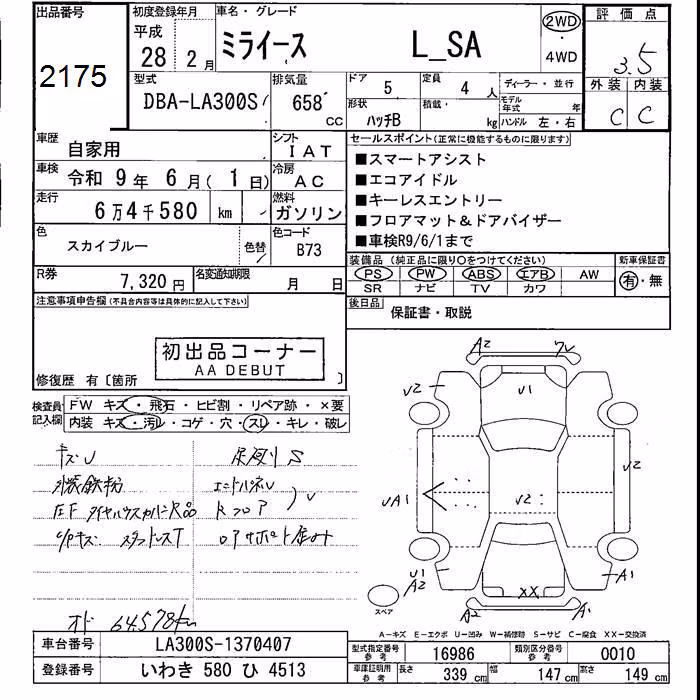 出品番号
2175
初度登録年月
平成
28年 2月
車名・グレード
ミライース L_SA
2WD
・
4WD
評価点
3.5
外装 内装
C C
型式
DBA-LA300S
排気量
658 CC
ドア
5
定員
4 人
形状
ハッチB
積載・ kg
ディーラー・並行
モデル年式 年
ハンドル 左・右
車歴
自家用
シフト
IAT
車検
令和 9年 6月( 1日)
冷房
AC
走行
6万4千580 km
燃料
ガソリン
色
スカイブルー
色替
色コード
B73
R券
7,320円
名変通知期限
月 日
セールスポイント(正常に機能するものに限ります)
■スマートアシスト
■エコアイドル
■キーレスエントリー
■フロアマット&ドアバイザー
■車検R9/6/1まで
装備品(純正品に限り○をつけてください)
PS PW ABS エアB AW
SR ナビ TV カワ
新車保証書
有・無
後日品
保証書・取説
注意事項申告欄(不具合内容等は具体的に記入して下さい)
初出品コーナー
AA DEBUT
修復歴 有〔箇所 〕
検査員記入欄
FW キズ・飛石・ヒビ割・リペア跡・×要
内装 キズ・汚れ・コゲ・穴・スレ・キレ・破レ
キズU
外装鉄粉
C/Pキズ スタッドレスT
オド 64,578km
A2
U1
U2
U2
UA1
U2
U1
A2
XX
A1
A2
A1
スペア
A-キズ E-エクボ U-凹み W-補修跡 S-サビ C-腐食 XX-交換済
車台番号
LA300S-1370407
登録番号
いわき 580 ひ 4513
型式指定番号
参考
16986
類別区分番号
参考
0010
車庫証明用
参考
長さ 339 cm 幅 147 cm 高さ 149 cm